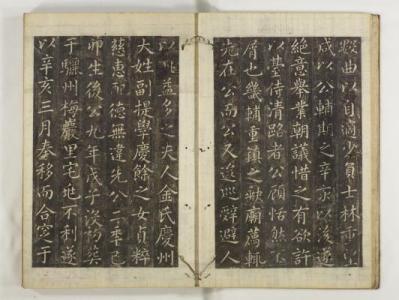 毅曲以自適少負士林重望
咸以公輔期之辛亥以後遂
絶意擧業朝議惜之有欲許
以臺侍清路者公顧恬然不
屑也幾輔重鎭之歐廟薦輒
先在公而公又逡巡辭避人
以此益多之夫人金氏慶州
大姓副提學慶餘之女貞粹
慈惠配德無違先公二季己
卯生後公九年戊子沒初葬
于驪州梅巖里宅地不利遂
以辛亥三月奉移而合窆于